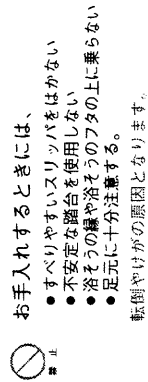 禁止
お手入れするときには、
●すべりやすいスリッパをはかない
●不安定な踏台を使用しない
●浴そうの縁や浴そうのフタの上に乗らない
●足元に十分注意する。
転倒やけがの原因となります。